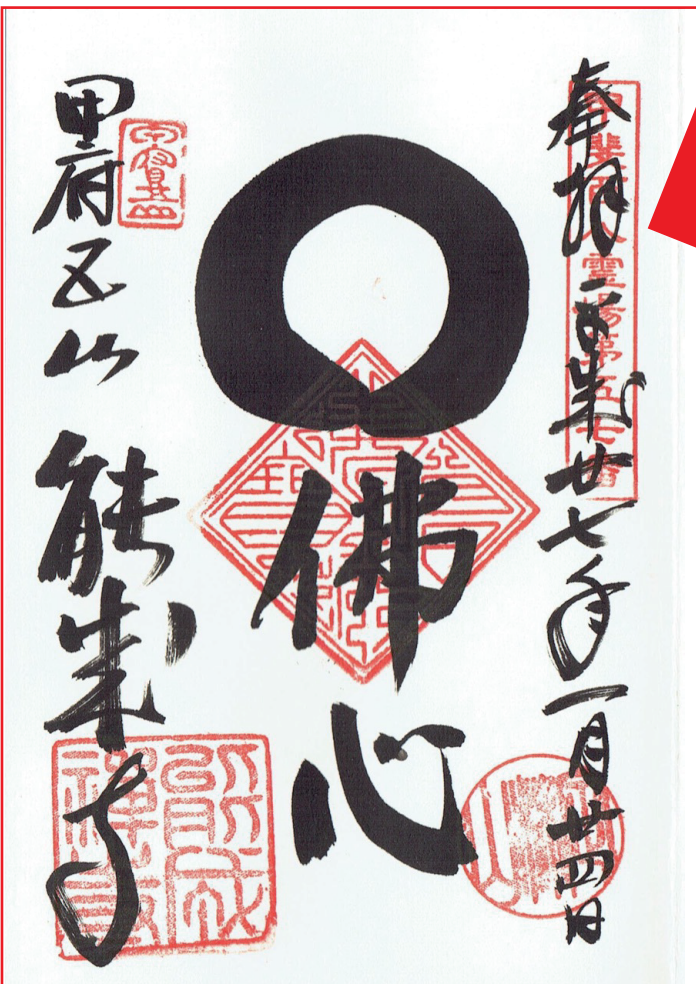 奉拝 平成廿七年一月廿四日
甲斐百八靈場第五七番
佛心
甲府五山 能成寺
能成禪寺